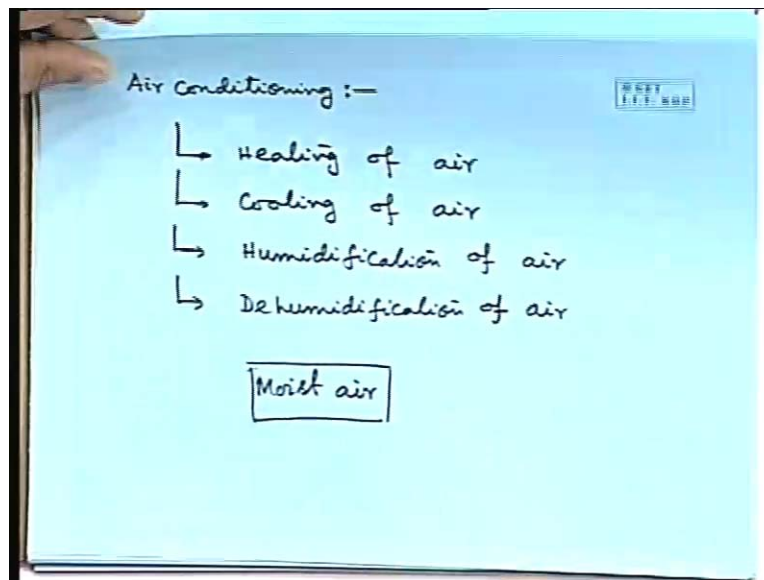 Air conditioning :—
Heating of air
Cooling of air
Humidification of air
Dehumidification of air
Moist air